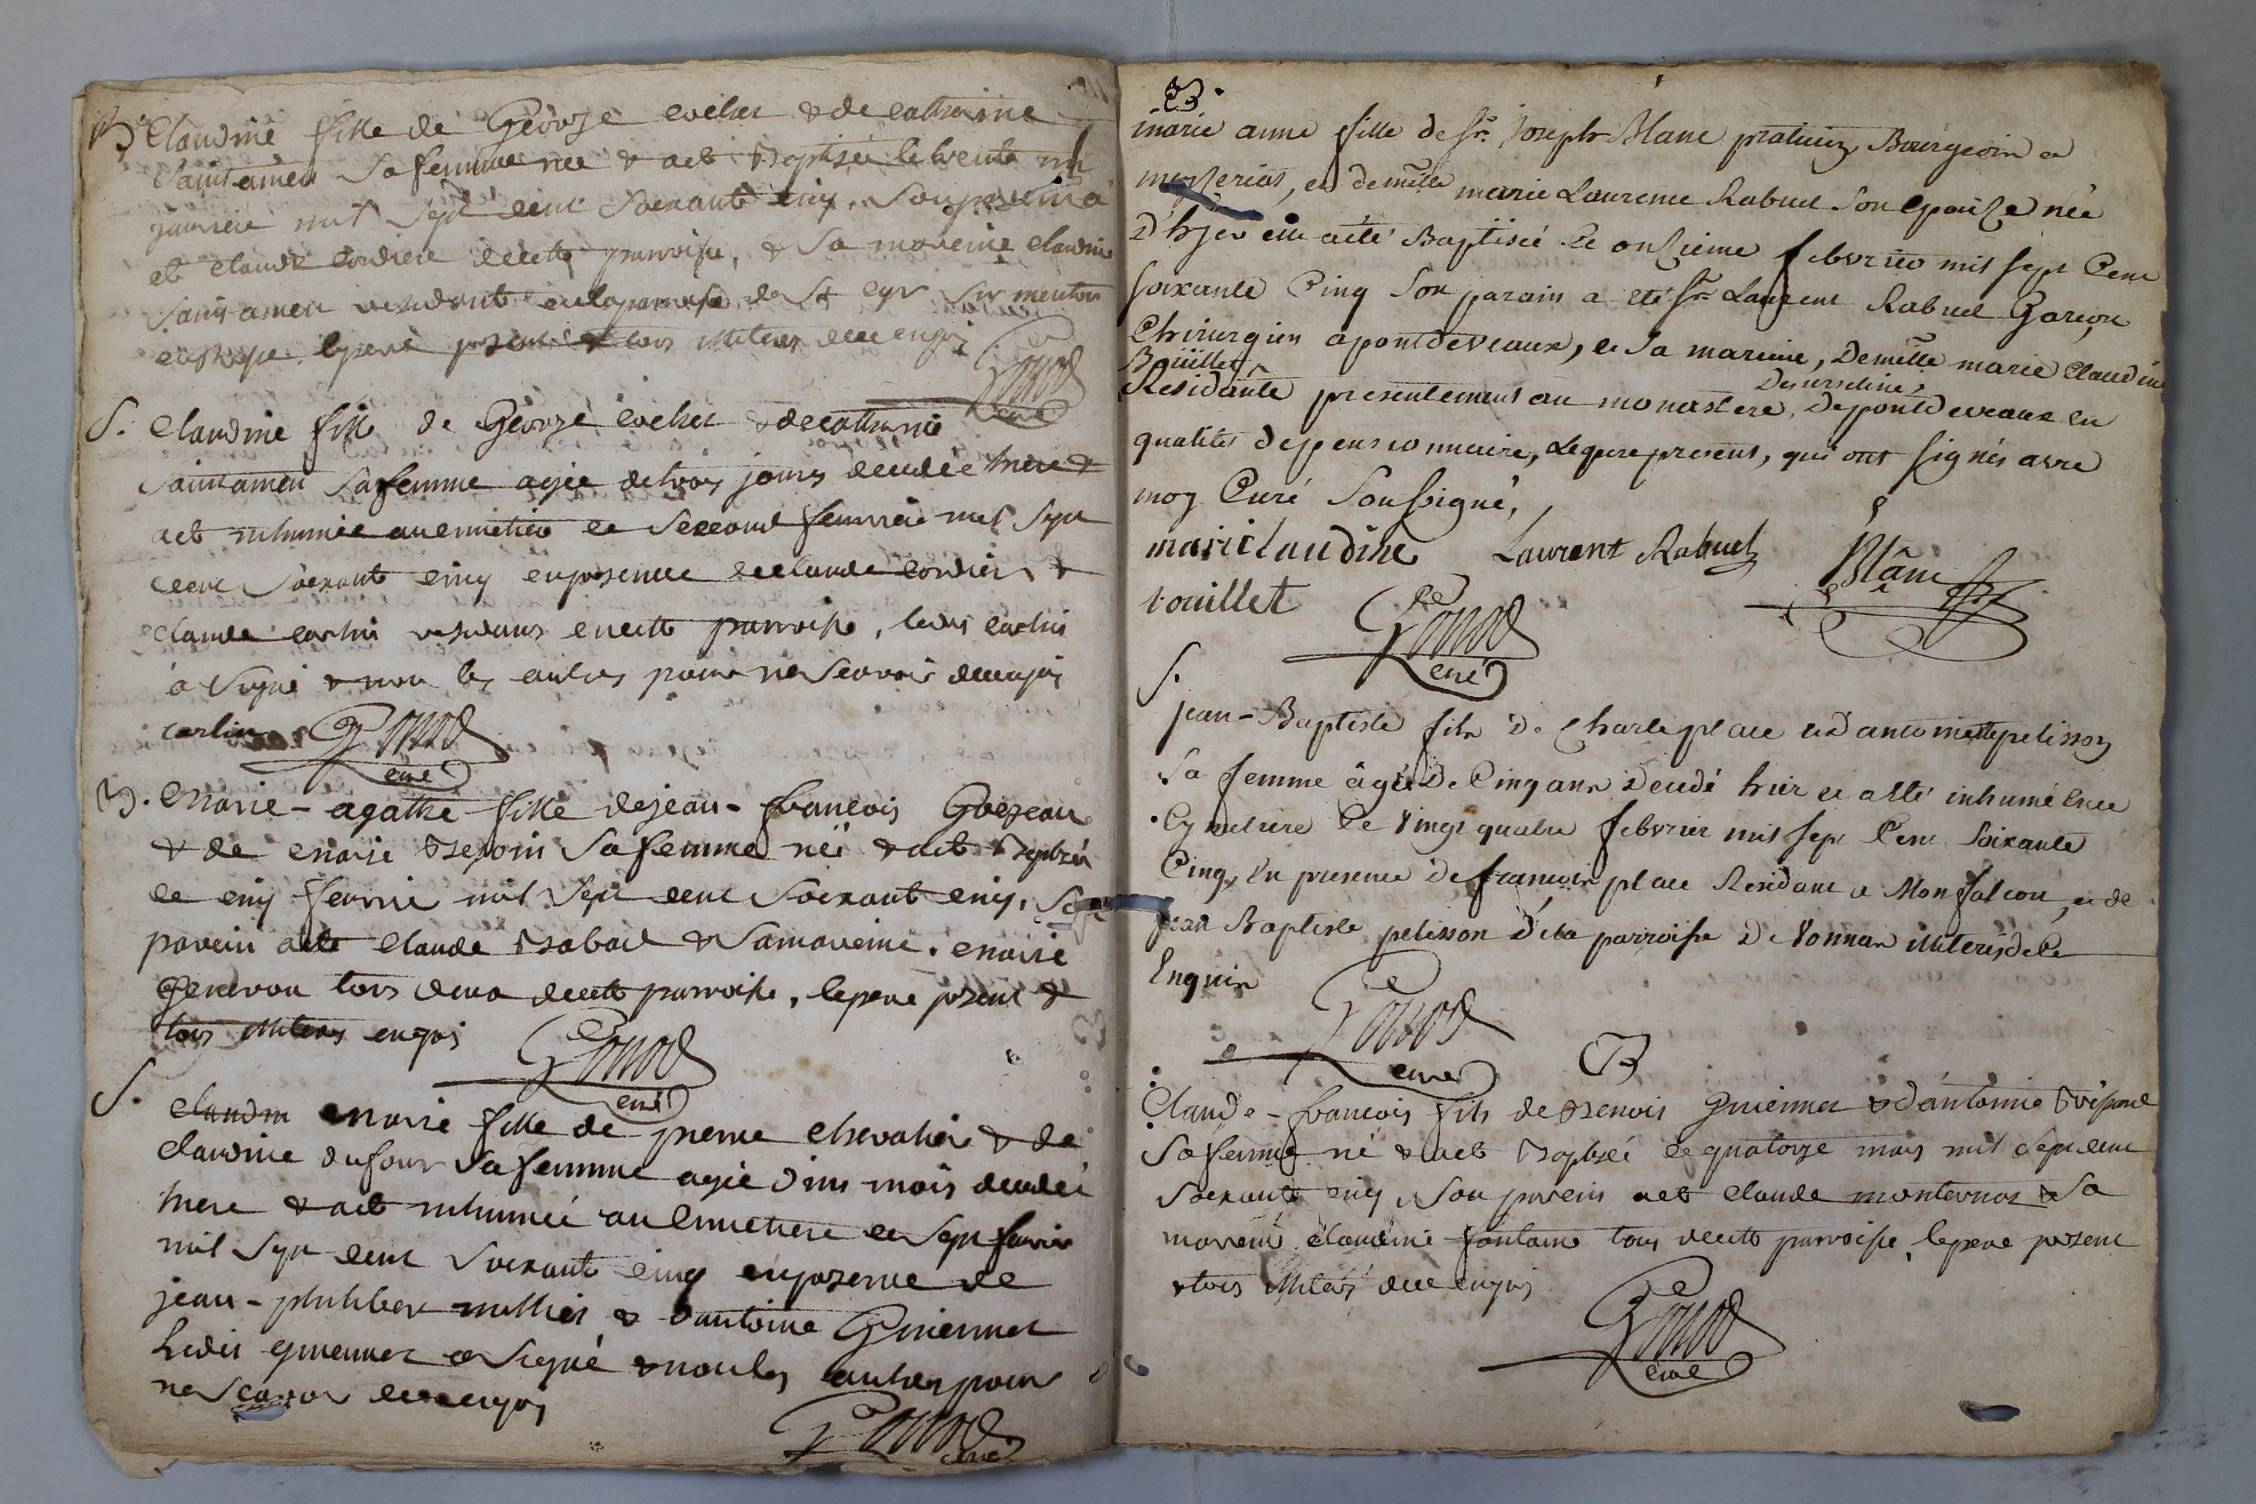 B Claudine fille de George cochet & de catherine
saintamen sa femme née & a eté Baptisée le trente un
janvier mil sept cent soixante cinq, son parein a
eté claude cordier de cette parroisse, & sa moreine claudine
saintamen residante en la parroisse de St cyr sur menton
le pere present & tous illiteres de ce enquis
Gonod
curé
S. Claudine fille de George cochet & de catherine
saintamen sa femme agée de trois jours decedée hiere &
a eté inhumée au cimetiere le second feuvrié mil sept
cent soixante cinq en presence de claude cordier &
claude carlin residans en cette parroisse, ledit carlin
a signé & non les autres pour ne scavoir de ce enquis
carlin Gonod
curé
B. Marie-agathe fille de jean-francois Goyeau
& de marie Bepoin sa femme née & a eté Baptisée
le cinq feuvrié mil sept cent soixante cinq, son
parein a eté claude & sa moreine marie
genevou tous deux de cette parroisse, le pere present &
tous illiteres enquis
Gonod
curé
S. Claudin Marie fille de pierre chevalier & de
claudine dufour sa femme agée d'un mois decedée
hiere & a eté inhumée au cimetiere le sept feuvrié
mil sept cent soixante cinq en presence de
jean-philibert & d'antoine Guiennet
ledit guiennet a signé & non les autres pour
ne scavoir de ce enquis
Gonod
curé
B.
marie anne fille de sr. joseph Blanc praticien Bourgeois a
mezeriat, et demlle marie Laurence Rabuel son epouze née
d'hier et a eté Baptisée le onzieme febvrier mil sept Cent
soixante Cinq son parain a eté sr Laurent Rabuel Garcon
Chirurgien a pontdeveaux, et sa mareine, Demlle marie Claudine
Boüillet
Residante presentement au monastere, des urselines de pontdeveaux en
qualité de pensionnaire, le pere present, qui ont signés avec
moy Curé soussigné,
marie claudine Laurent Rabuel Blanc
bouillet Gonod
curé
S.
jean-Baptiste fils de Charle place et d'antoinette pelisson
sa femme âgé de Cinq ans decedé hier et a eté inhumé au
Cymetiere le vingt quatre febvrier mil sept Cent soixante
Cinq, en presence de francois place Residant a Monfalcon, et de
jean Baptiste pelisson de la parroisse de vonnas illiteres de ce
Enquis
Gonod
curé
B
Claude-francois fils de Benoit Guiennet & d'antoine
sa femme né & a eté Baptisé le quatorze mars mil sept cent
soixante cinq, son parein a eté claude monternoz & sa
moreine claudine fontaine tous de cette parroisse, le pere present
& tous illiteres de ce enquis
Gonod
curé